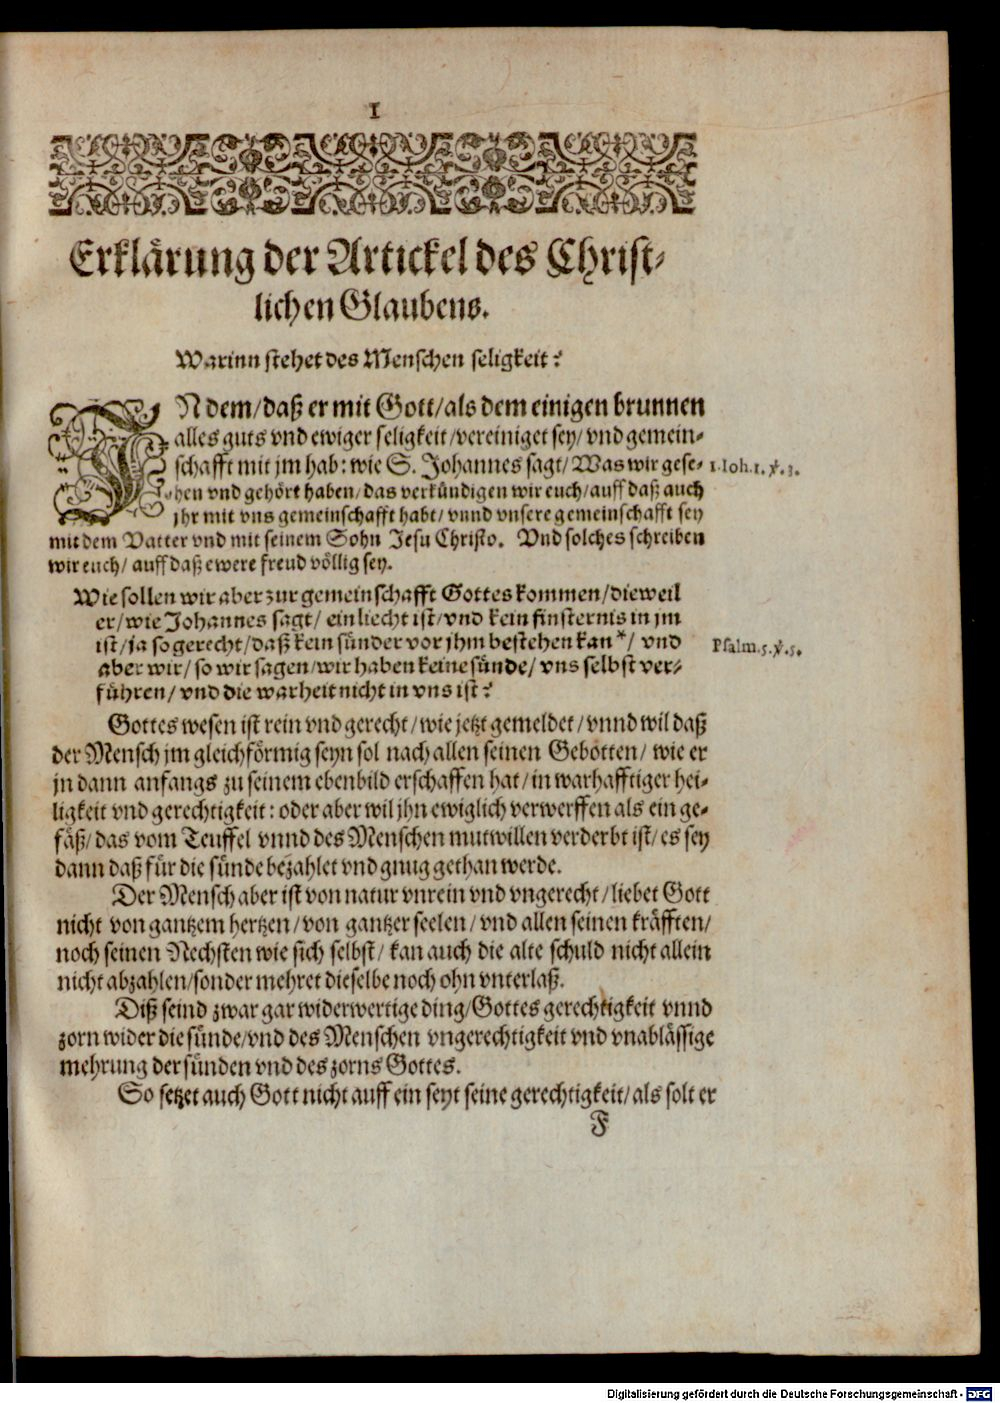 1
Erklärung der Artickel des Christ-
lichen Glaubens.
Warinn stehet des Menschen seligkeit?
IN dem/ daß er mit Gott/ als dem einigen brunnen
alles guts vnd ewiger seligkeit/ vereiniget sey/ vnd gemein-
schafft mit jm hab: wie S. Johannes sagt/ Was wir gese-
hen vnd gehört haben/ das verkündigen wir euch/ auff daß auch
jhr mit vns gemeinschafft habt/ vnnd vnsere gemeinschafft sey
mit dem Vatter vnd mit seinem Sohn Jesu Christo. Vnd solches schreiben
wir euch/ auff daß ewere freud völlig sey.
1. Ioh. 1. ℣. 3.
Wie sollen wir aber zur gemeinschafft Gottes kommen/ dieweil
er/ wie Johannes sagt/ ein liecht ist/ vnd kein finsternis in jm
ist/ ja so gerecht/ daß kein sünder vor jhm bestehen kan*/ vnd
aber wir/ so wir sagen/ wir haben keine sünde/ vns selbst ver-
führen/ vnd die warheit nicht in vns ist?
Psalm. 5. ℣. 5.
Gottes wesen ist rein vnd gerecht/ wie jetzt gemeldet/ vnnd wil daß
der Mensch jm gleichförmig seyn sol nach allen seinen Gebotten/ wie er
jn dann anfangs zu seinem ebenbild erschaffen hat/ in warhafftiger hei-
ligkeit vnd gerechtigkeit: oder aber wil jhn ewiglich verwerffen als ein ge-
fäß/ das vom Teuffel vnnd des Menschen mutwillen verderbt ist/ es sey
dann daß für die sünde bezahlet vnd gnug gethan werde.
Der Mensch aber ist von natur vnrein vnd vngerecht/ liebet Gott
nicht von gantzem hertzen/ von gantzer seelen/ vnd allen seinen kräfften/
noch seinen Nechsten wie sich selbst/ kan auch die alte schuld nicht allein
nicht abzahlen/ sonder mehret dieselbe noch ohn vnterlaß.
Diß seind zwar gar widerwertige ding/ Gottes gerechtigkeit vnnd
zorn wider die sünde/ vnd des Menschen vngerechtigkeit vnd vnablässige
mehrung der sünden vnd des zorns Gottes.
So setzet auch Gott nicht auff ein seyt seine gerechtigkeit/ als solt er
F
Digitalisierung gefördert durch die Deutsche Forschungsgemeinschaft - DFG